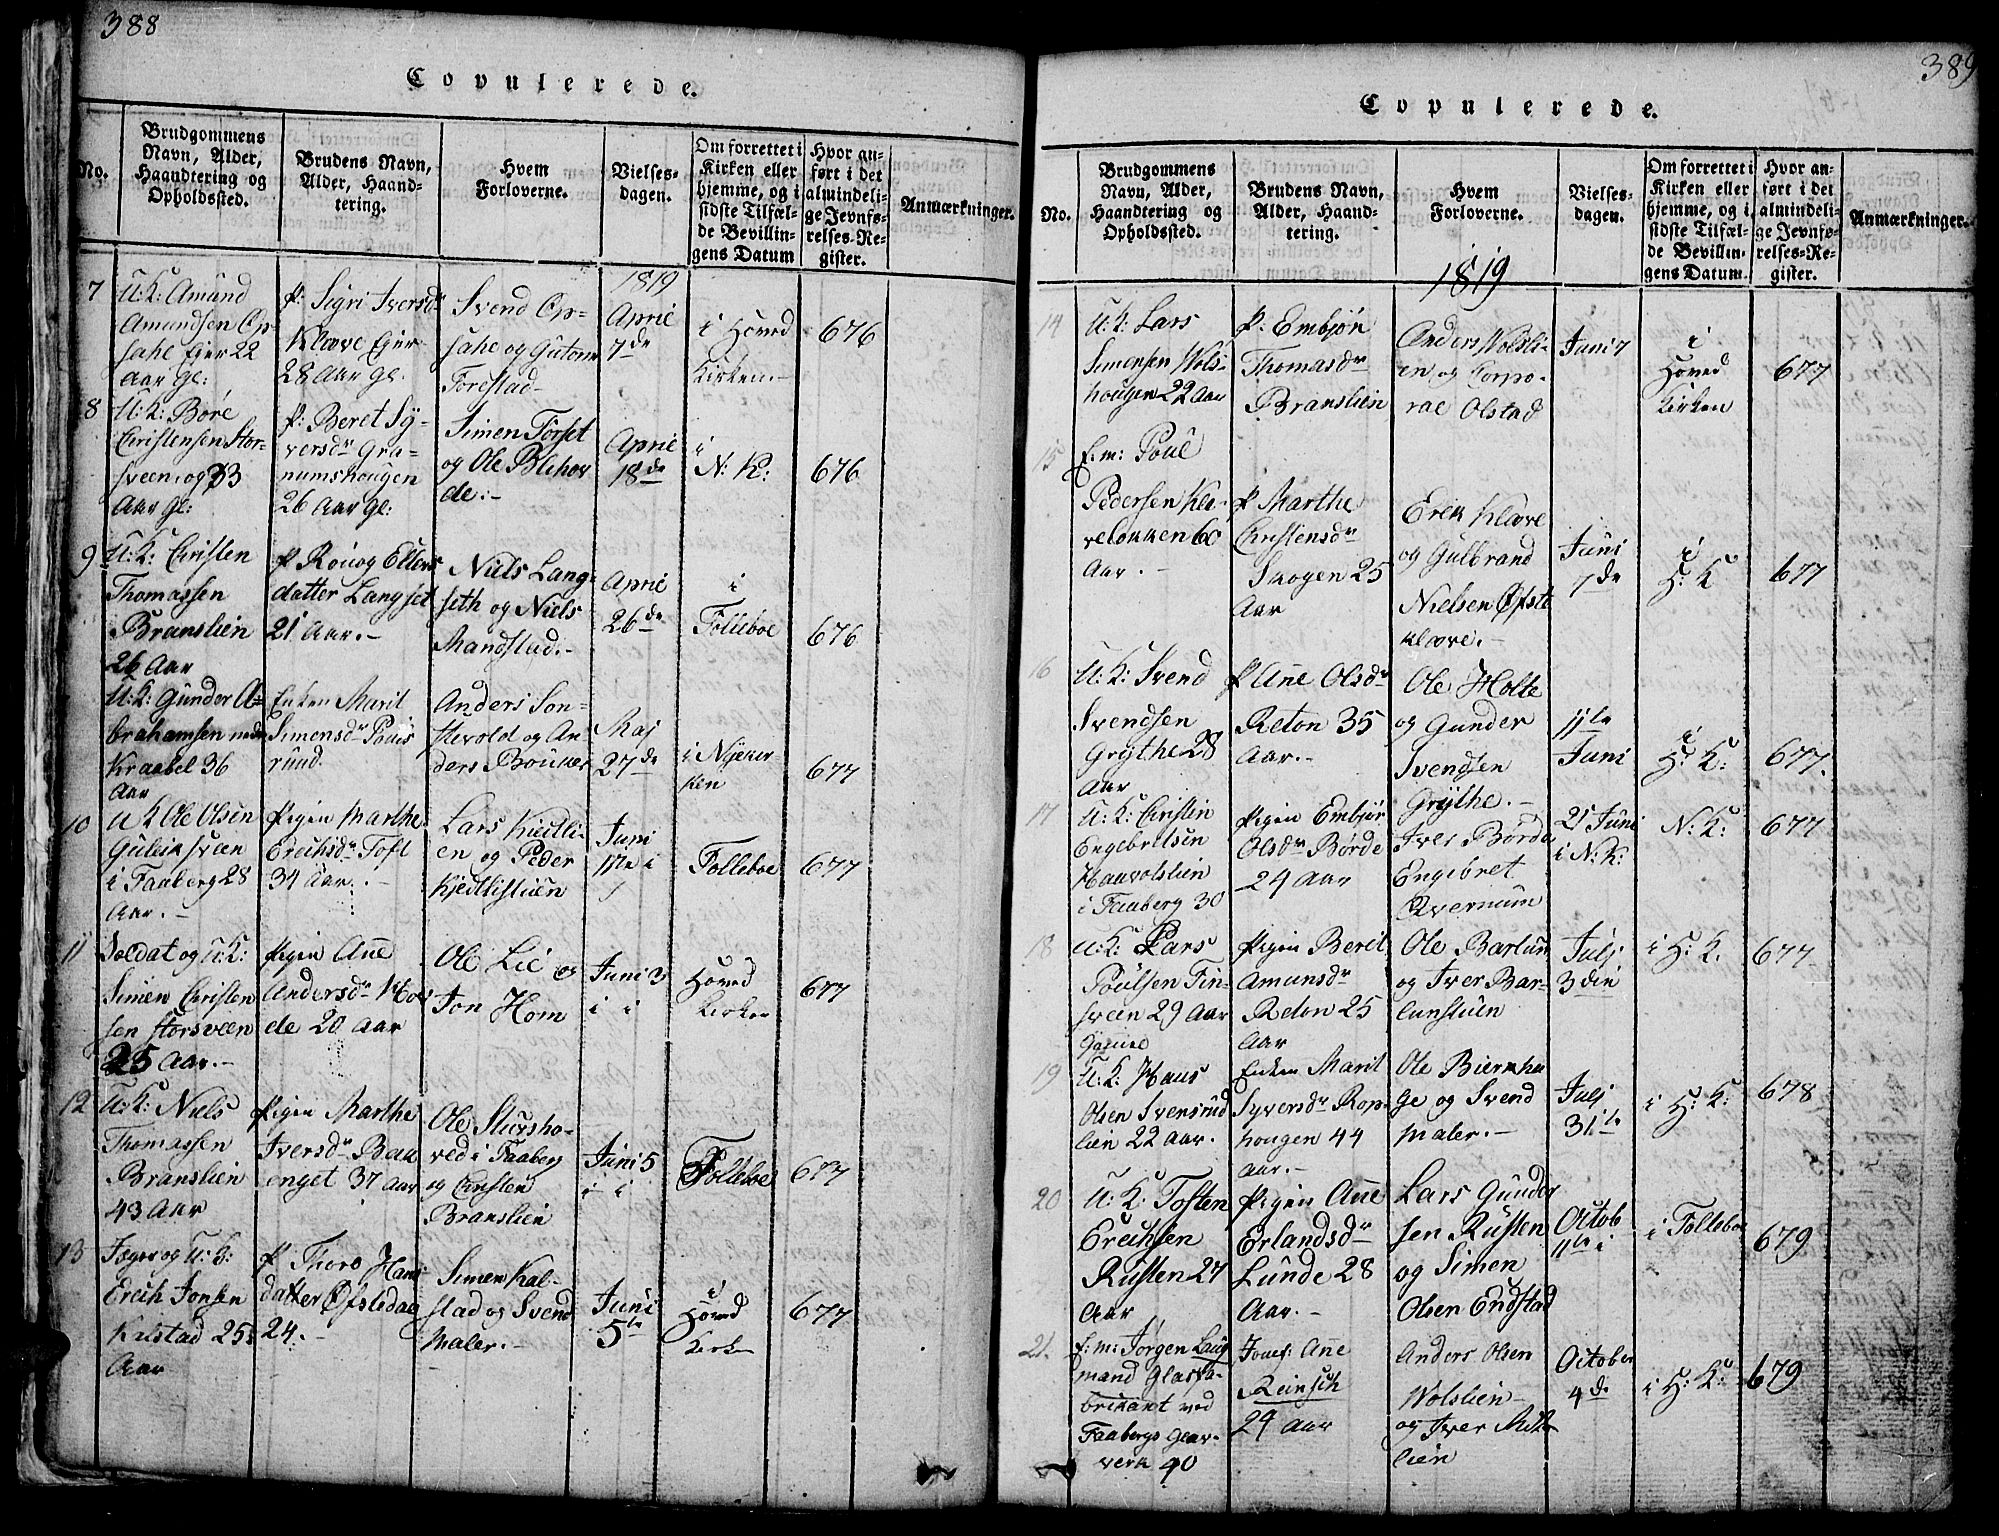 388
Copulerede.
No.
Brudgommens
Navn, Alder,
Haandtering og
Opholdssted.
Brudens Navn,
Alder, Haand-
tering.
Hvem
Forloverne.
Vielses-
dagen.
Om forrettet i
Kirken eller
hjemme, og i
sidste Tilfæl-
de Bevillin-
gens Datum
Hvor an-
ført i det
almindeli-
ge Jevnfø-
relses-Re-
gister.
Anmærkninger.
1819
7
U: K: Amund
Amundsen Op-
sahl Ejer 22
Aar gl:
P: Sigri Iversdr
Klæve Ejer
28 Aar gl.
Svend Op-
sahl og Gutorm
Forestad-
April
7de
i Hoved
Kirken.-
676
8
U: K: Bore
Christensen Stor-
sveen, og 33
Aar gl:
P: Beret Sy-
versdr Gra-
numshougen
26 Aar gl:
Simen Forset
og Ole Blehov
de:-
April
18de
i
N: K:
676
9
U: K: Christen
Thomassen
Branslien
26 Aar
P. Rouog Ellers
datter Langset
21 Aar.-
Niels Lang-
seth og Niels
Mandstad.-
April
26de
i
Folleboe
676
U: K: Gunder A-
brahamsen
Kraabel 36
Aar
Enken Marit
Simensdr Pouls
rund.
Anders Son-
stevold og An-
ders Bouker
Maj
27de
i Nyekir
ken
677
10
U K Ole Olsen
sveen
i Faaberg 28
Aar.-
Pigen Marthe
Erichsdr Toft
34 Aar.-
Lars Kiedli-
en og Peder
Kjedlistuen
Juni
Folleboe
677
11
Soldat og U: K:
Simen Christen
sen Storsveen
25 Aar.-
Pigen Ane
Andersdr Hov
de 20 Aar
Ole Lie og
Jon Hom
Juni 3
i i
Hoved
Kirken
677
12
U: K: Niels
Thomassen
Branslien
43 Aar
Pigen Marthe
Iversdr Bak
enget 37 Aar
Ole Stursho-
ved i Faaberg
og Christen
Branslien
Juni 5
i i
Folleboe
677
13
Jæger og U: K:
Erich Jonsen
Kalstad 25
Aar
P. Thore Hans
datter Øfstedag
24.-
Simen Kal-
stad og Svend
Maler.-
Juni
5te
i
Hoved
Kirke
677
389
Copulerede.
No.
Brudgommens
Navn, Alder,
Haandtering og
Opholdssted.
Brudens Navn,
Alder, Haand-
tering.
Hvem
Forloverne.
Vielses-
dagen.
Om forrettet i
Kirken eller
hjemme, og i
sidste Tilfæl-
de Bevillin-
gens Datum.
Hvor an-
ført i det
almindeli-
ge Jevnfø-
relses-Re-
gister.
Anmærkninger.
1819
14
U: K: Lars
Simensen Wols-
hougen 22 Aar
P. Embjøn
Thomasdr
Branslien
Anders Wolsli-
en og Corpo-
ral Olstad
Juni 7
i
Hoved
Kirken
677
15
E. m: Poul
Pedersen Klæ-
veløkken 60
Aar.-
P. Marthe
Christensdr
Skogen 25
Aar
Erik Klæve
og Gulbrand
Nielsen Øfste
klæve.-
Juni
7de
i
H: K
677
16
U: K: Svend
Svendsen
Grythe 28
Aar
P. Ane Olsdr
Reton 35
Aar.-
Ole Holte
og Gunder
Svendsen
Grythe.-
11te
Juni
i
H: K:
677.
17
U: K: Christen
Engebretsen
Haavolslien
i Faaberg 30
Pigen Embjør
Olsdr Børde
24 Aar
Iver Børde
Engebret
Qvernum
21 Juni
i N: K:
N: K:
677
18
U: K: Lars
Poulsen Fin-
sveen 29 Aar
Pigen Beret
Amunsdr
Reton 25
Aar
Ole Barlun
og Iver Bar-
lunstuen
Julj
3die
i H: K.
677
19
U: K: Hans
Olsen Svensrud
lien 22 Aar.
Enken Marit
Syversdr Rop-
hougen 44
Aar.-
Ole Bierkha
ge og Svend
Maler.-
Julj
31te
i H: K:
678
20
U: K: Tosten
Erichsen
Rusten 27
Aar
Pigen Ane
Erlandsdr
Lunde 28
Aar.-
Lars Gunder
sen Rusten
og Simen
Olsen Endstad
Octob
11te i
i Folleboe
679
21.
E: m: Jørgen Laug
mand Glasfa-
brikant ved
Faabergs Glas-
verk 40
Jomf: Ane
Reinsch
24 Aar
Anders Olsen
Wolslien-
og Iver
lien
October
4de
i H: K:
679